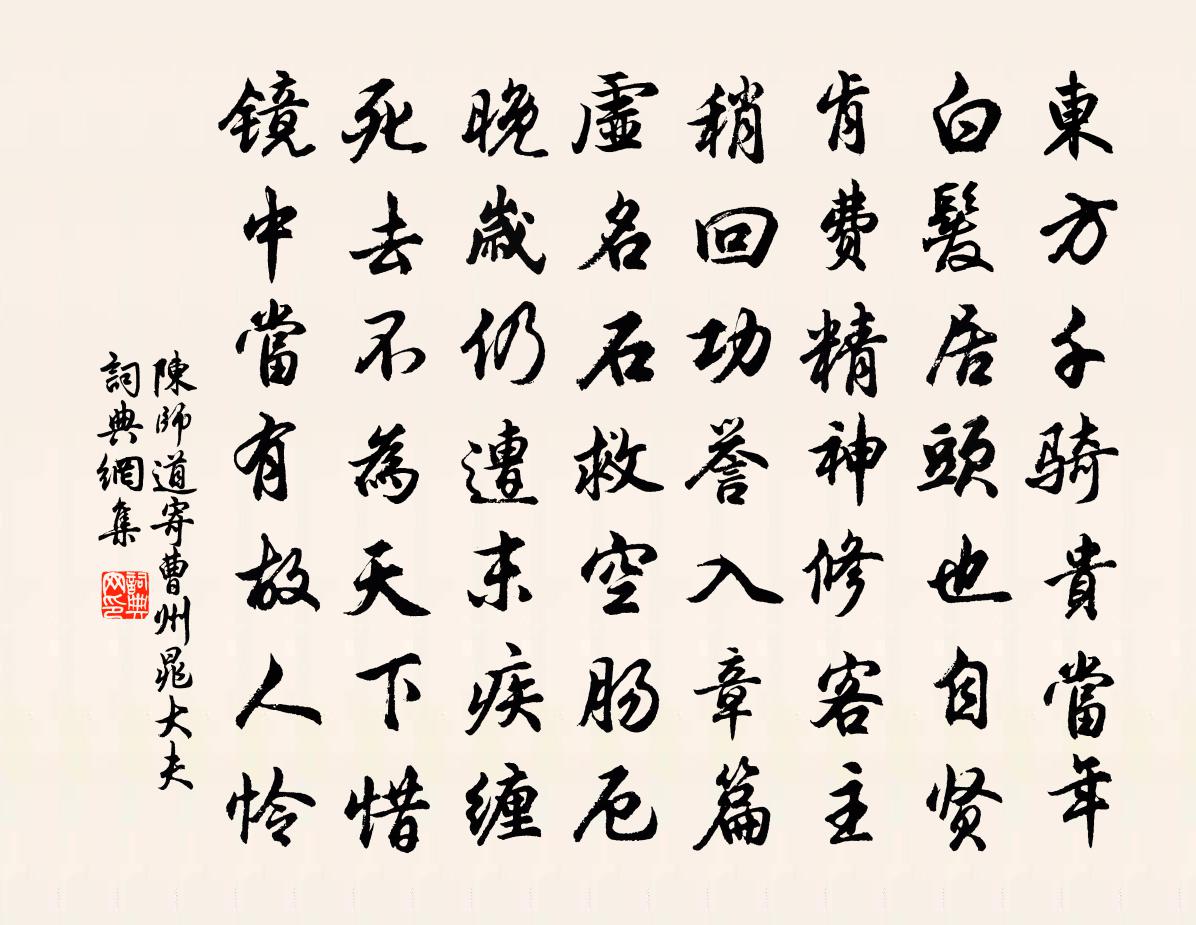 東方千骑貴當年
白髮居頭也自贤
肯費精神修客主
稍回功誉入章篇
虛名石救空肠厄
晚歲仍遭末疾缠
死去不為天下惜
镜中當有故人怜
陳師道寄曹州晁大夫
詞典網集
詞典网印